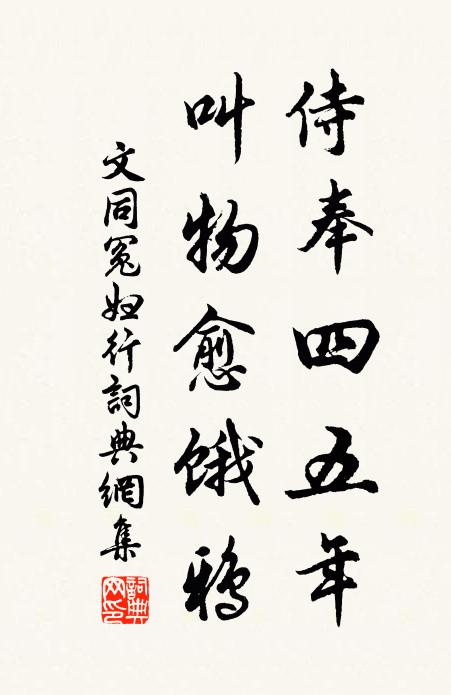 侍奉四五年
叫物愈饿鸦
文同冤妇行詞典網集
詞典网印